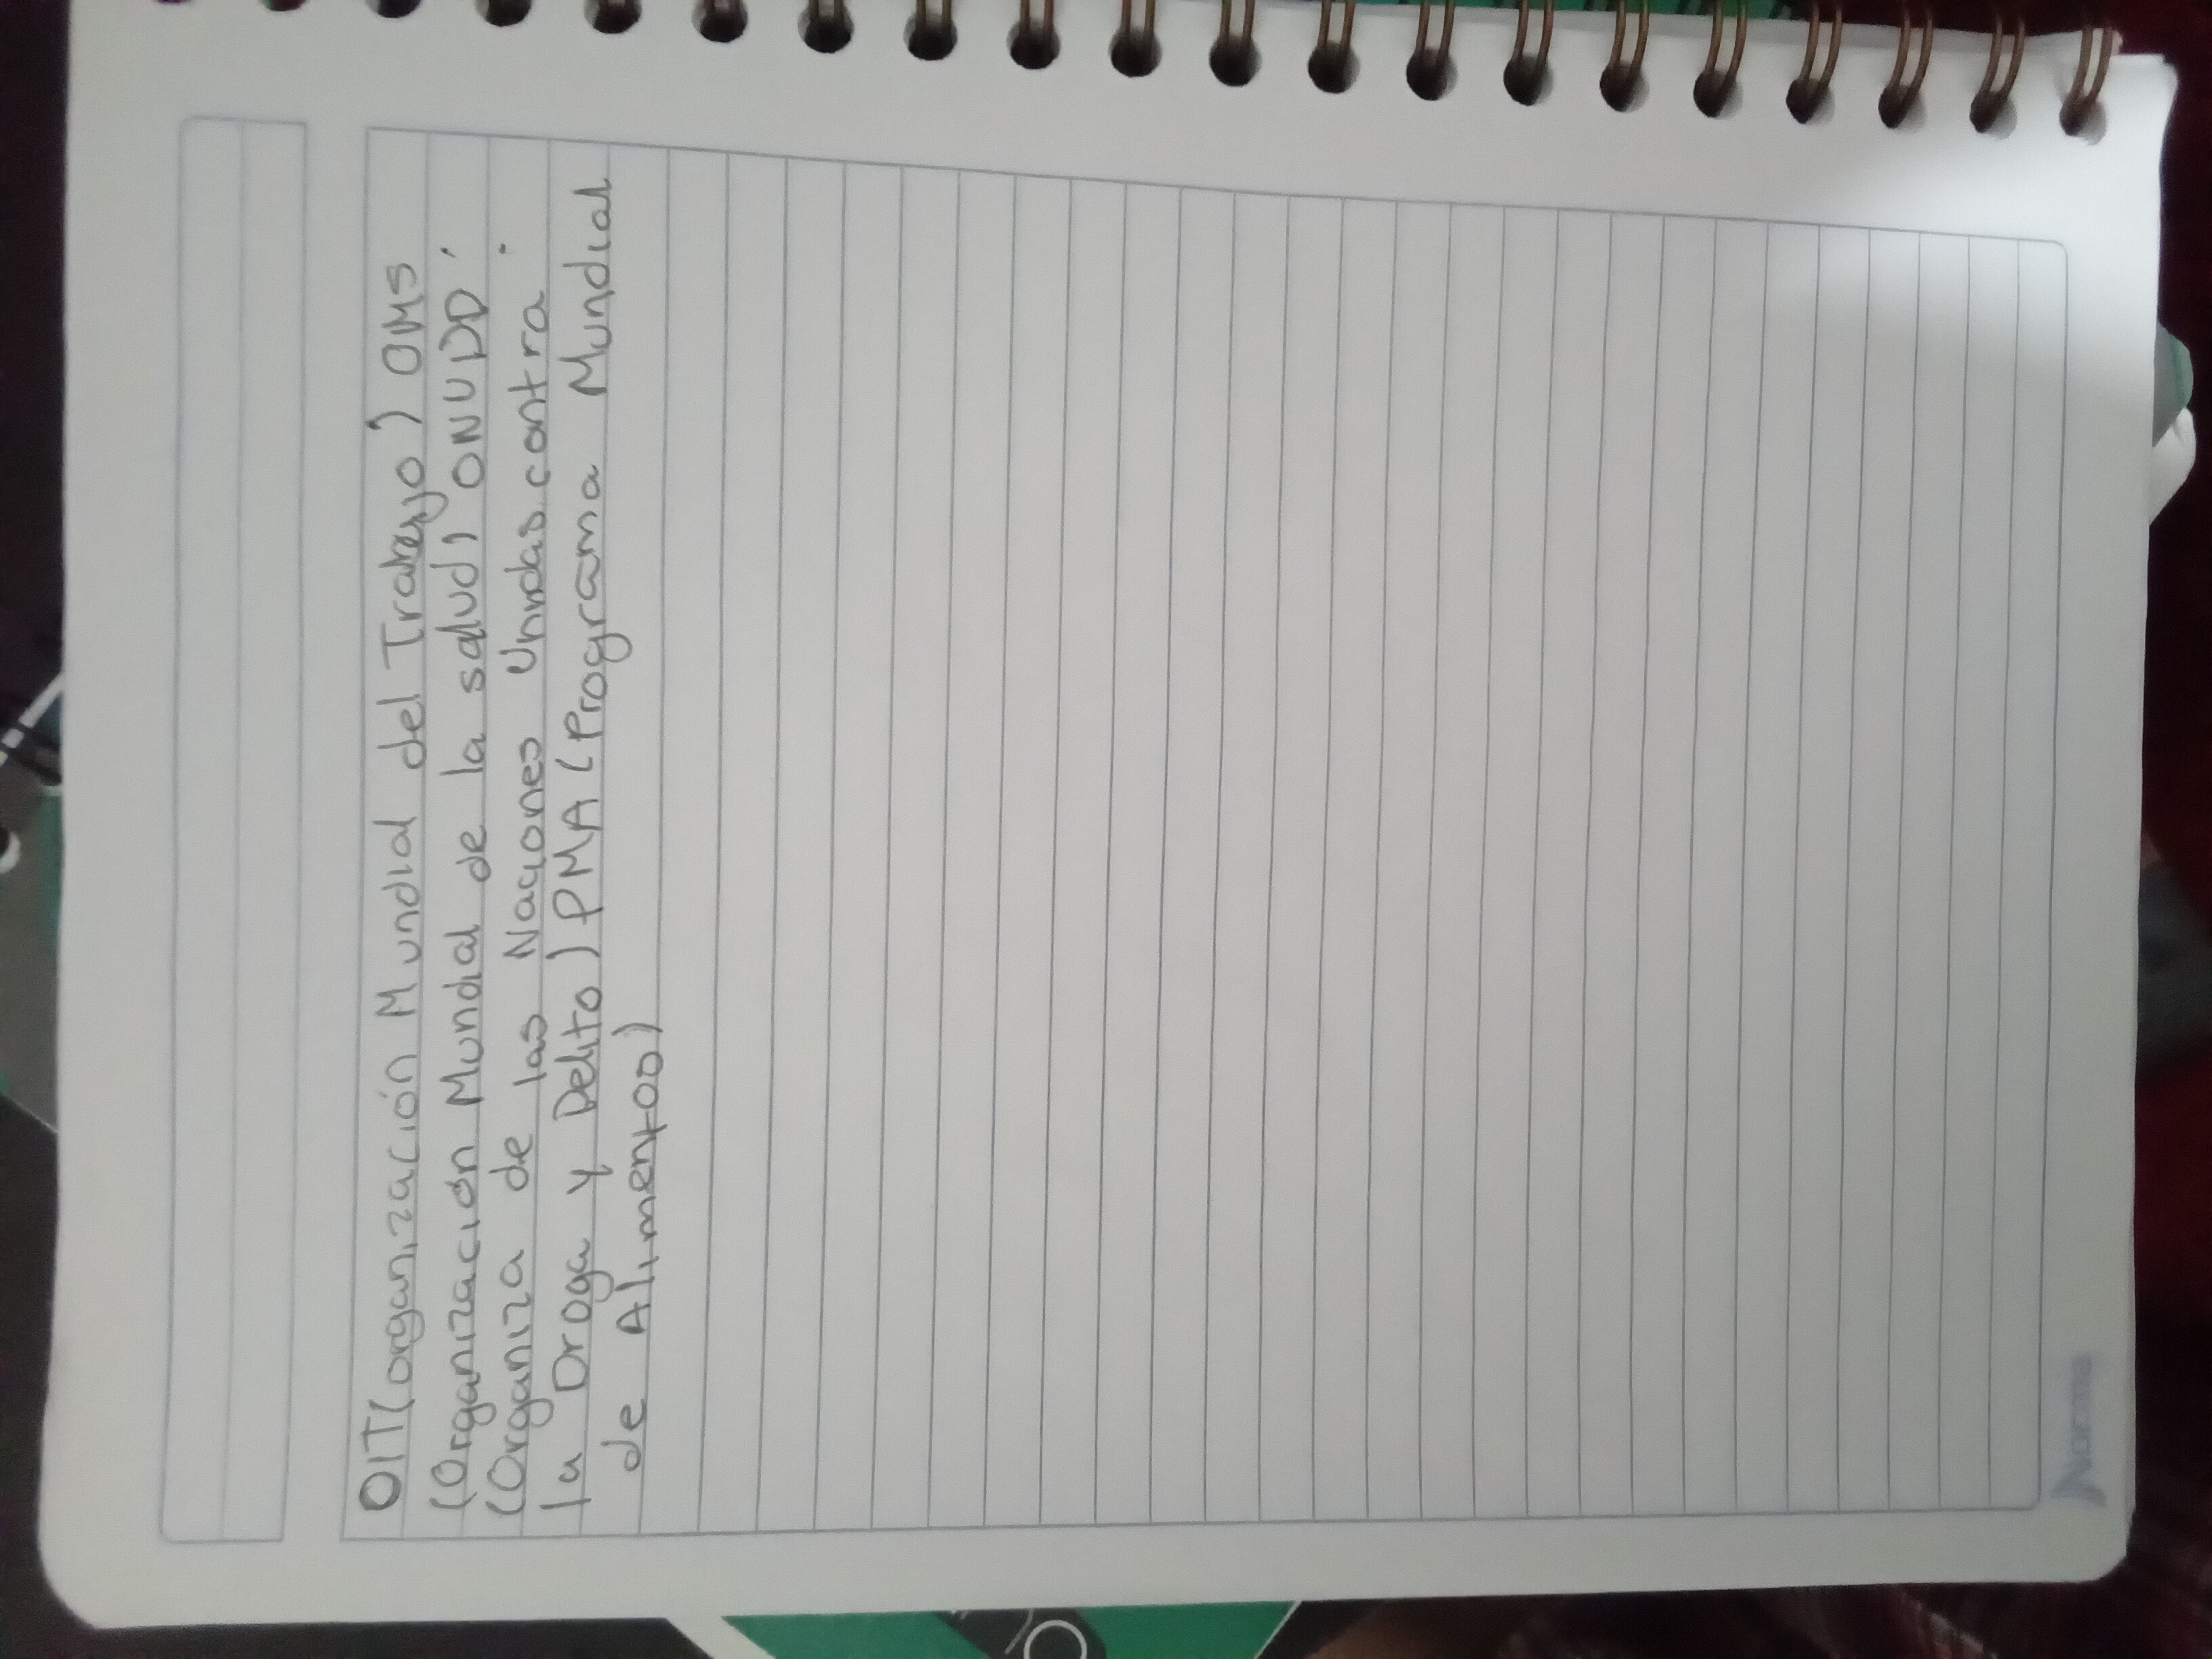 OIT(organización Mundial del Trabajo) OMS
(Organización Mundial de la salud) ONUDD
(Organiza de las Naciones Unidas contra
la Droga y Delito) PMA (Programa Mundial
de Alimentos)
Norma